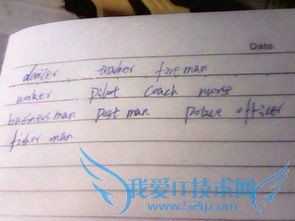 Date.
dancer teacher fire man
worker pilot coach nurse
business man post man police officer
fisher man
我爱IT技术网
www.52ij.com